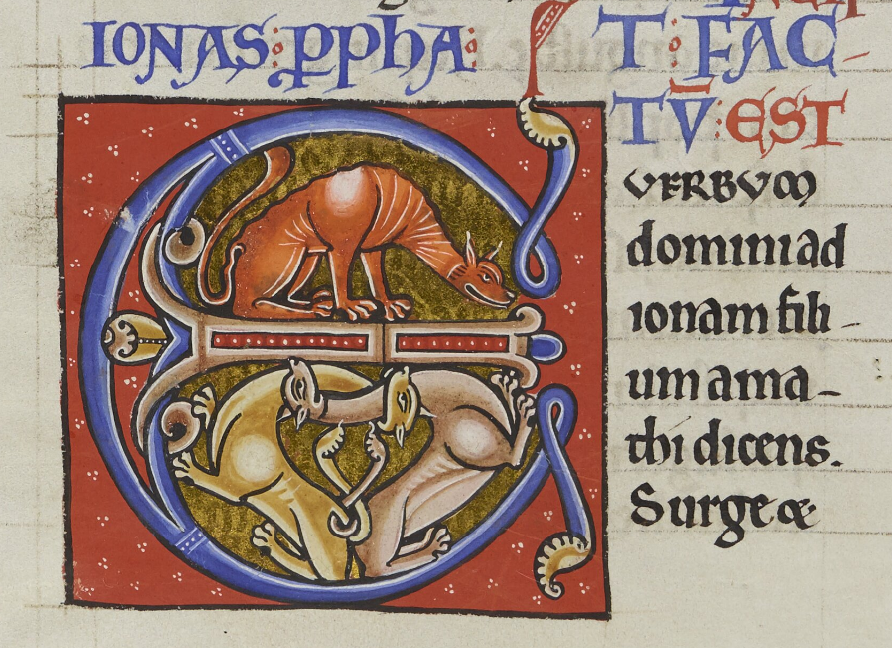 IONAS: PPHA:
E
T: FAC-
TV̄: EST
VERBVM
dominiad
ionam fili-
um ama-
thi dicens.
Surge &